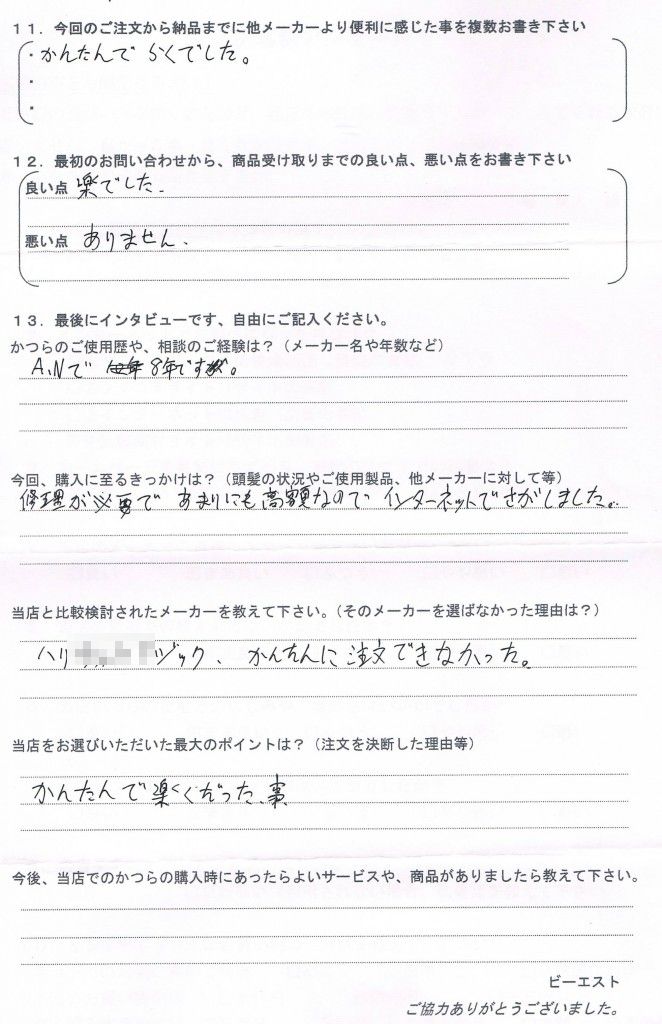 11．今回のご注文から納品までに他メーカーより便利に感じた事を複数お書き下さい
・かんたんで らくでした。
・
・
12．最初のお問い合わせから、商品受け取りまでの良い点、悪い点をお書き下さい
良い点 楽でした.
悪い点 ありません.
13．最後にインタビューです、自由にご記入ください。
かつらのご使用歴や、相談のご経験は？（メーカー名や年数など）
A.Nで 8年です。
今回、購入に至るきっかけは？（頭髪の状況やご使用製品、他メーカーに対して等）
修理が必要で あまりにも高額なので インターネットでさがしました。
当店と比較検討されたメーカーを教えて下さい。（そのメーカーを選ばなかった理由は？）
ハリ ジック、かんたんに注文できなかった。
当店をお選びいただいた最大のポイントは？（注文を決断した理由等）
かんたんで楽くだった、事
今後、当店でのかつらの購入時にあったらよいサービスや、商品がありましたら教えて下さい。
ビーエスト
ご協力ありがとうございました。